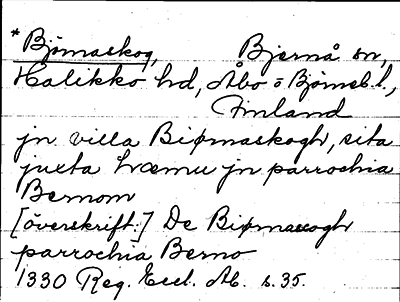 *Björnaskog, Bjernå sn,
Halikko hd, Åbo o Björneb. l.,
Finland
jn villa Biørnaskogh, sita
juxta hæmu jn parrochia
Bernom
[överskrift:] De Biørnascogh
parrochia Berno
1330 Reg. Eccl. Ab. s. 35.